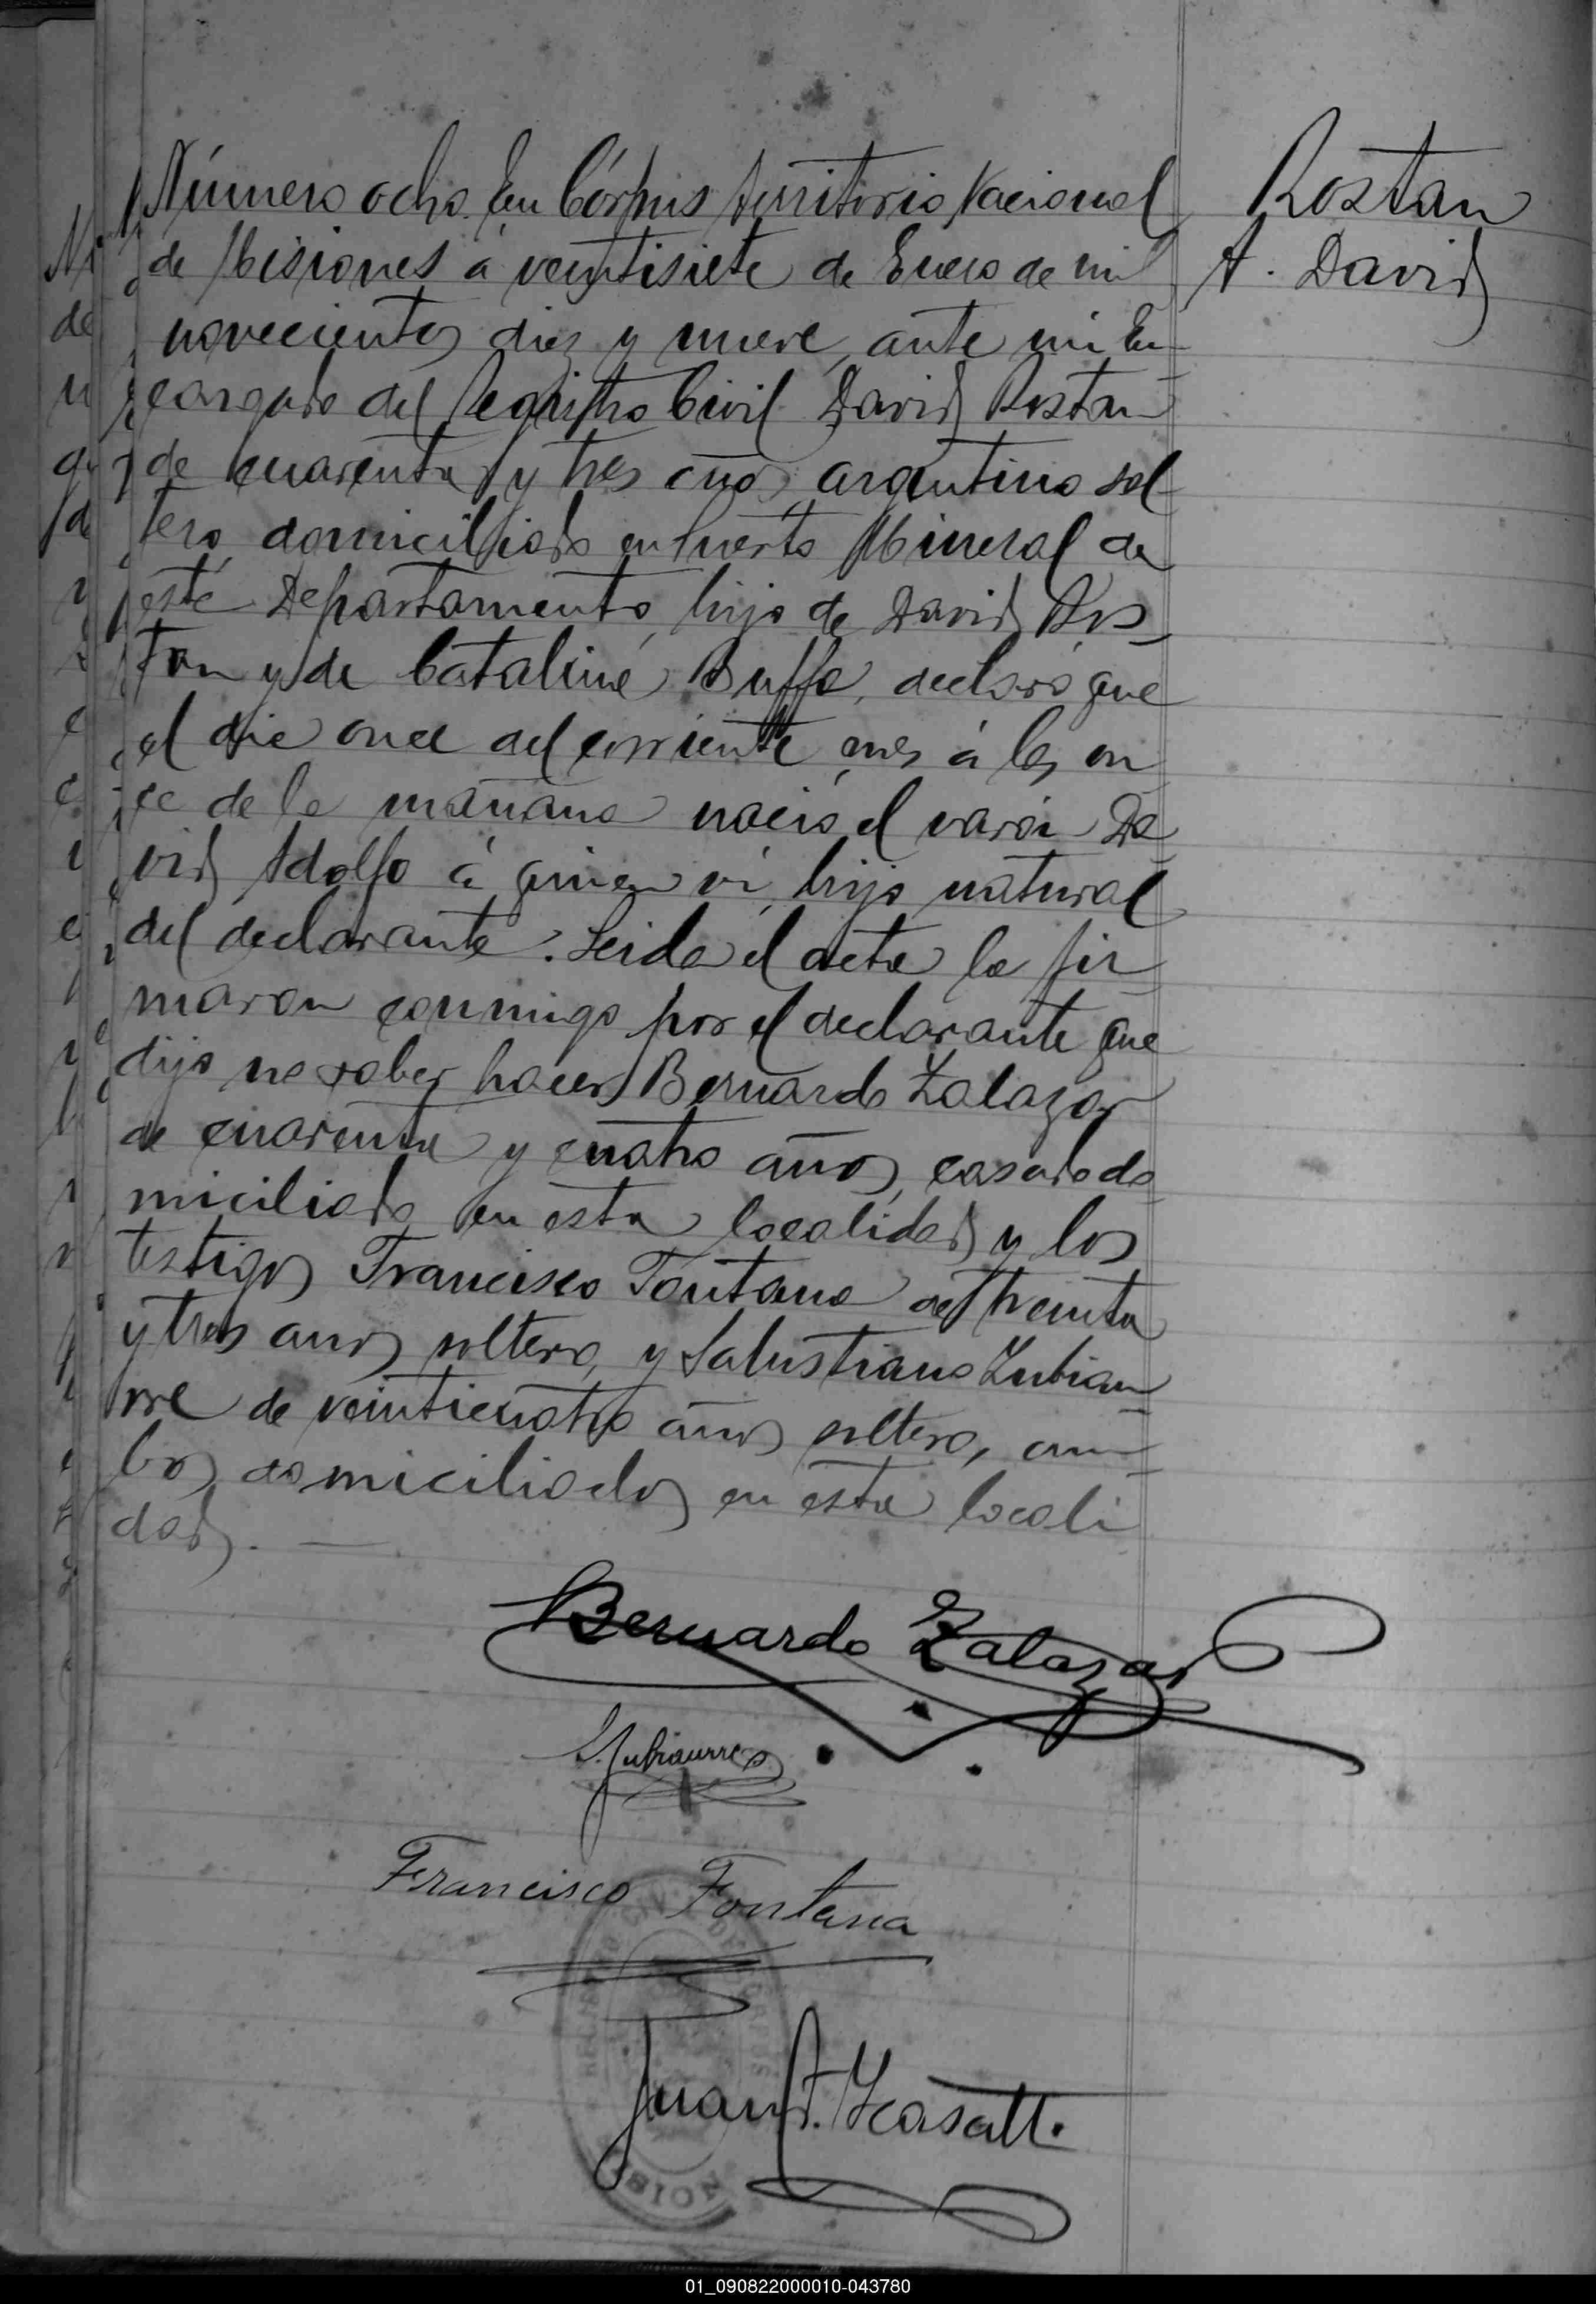 Número ocho. En Córpus Territorio Nacional
de Misiones á veintisiete de Enero de mil
novecientos diez y nueve, ante mi En
cargado del Registro Civil David Rostan
de cuarenta y tres años, argentino sol
tero, domiciliado en Puerto Mineral de
este Departamento, hijo de David Ros
tan y de Catalina Buffa, declaró que
el dia once del corriente mes á las on
ce de la mañana nació el varón Da
vid Adolfo á quien vi, hijo natural
del declarante. Leida el acta la fir
maron conmigo por el declarante que
dijo no saber hacer Bernardo Zalazar
de cuarenta y cuatro años, casado do
miciliado en esta localidad y los
testigos Francisco Fontana de treinta
y tres años soltero, y Salustiano Zubiau
rre de veinticuatro años soltero, am
bos domiciliados en esta locali
dad. —
Rostan
A. David
Bernardo Zalazar
S. Zubiaurre
Francisco Fontana
Juan
01_090822000010-043780